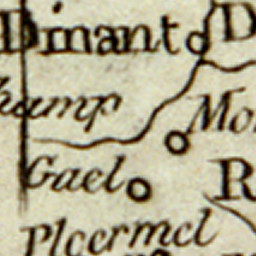 Dinant D
hamp
Mo
Gael R
Pleermel